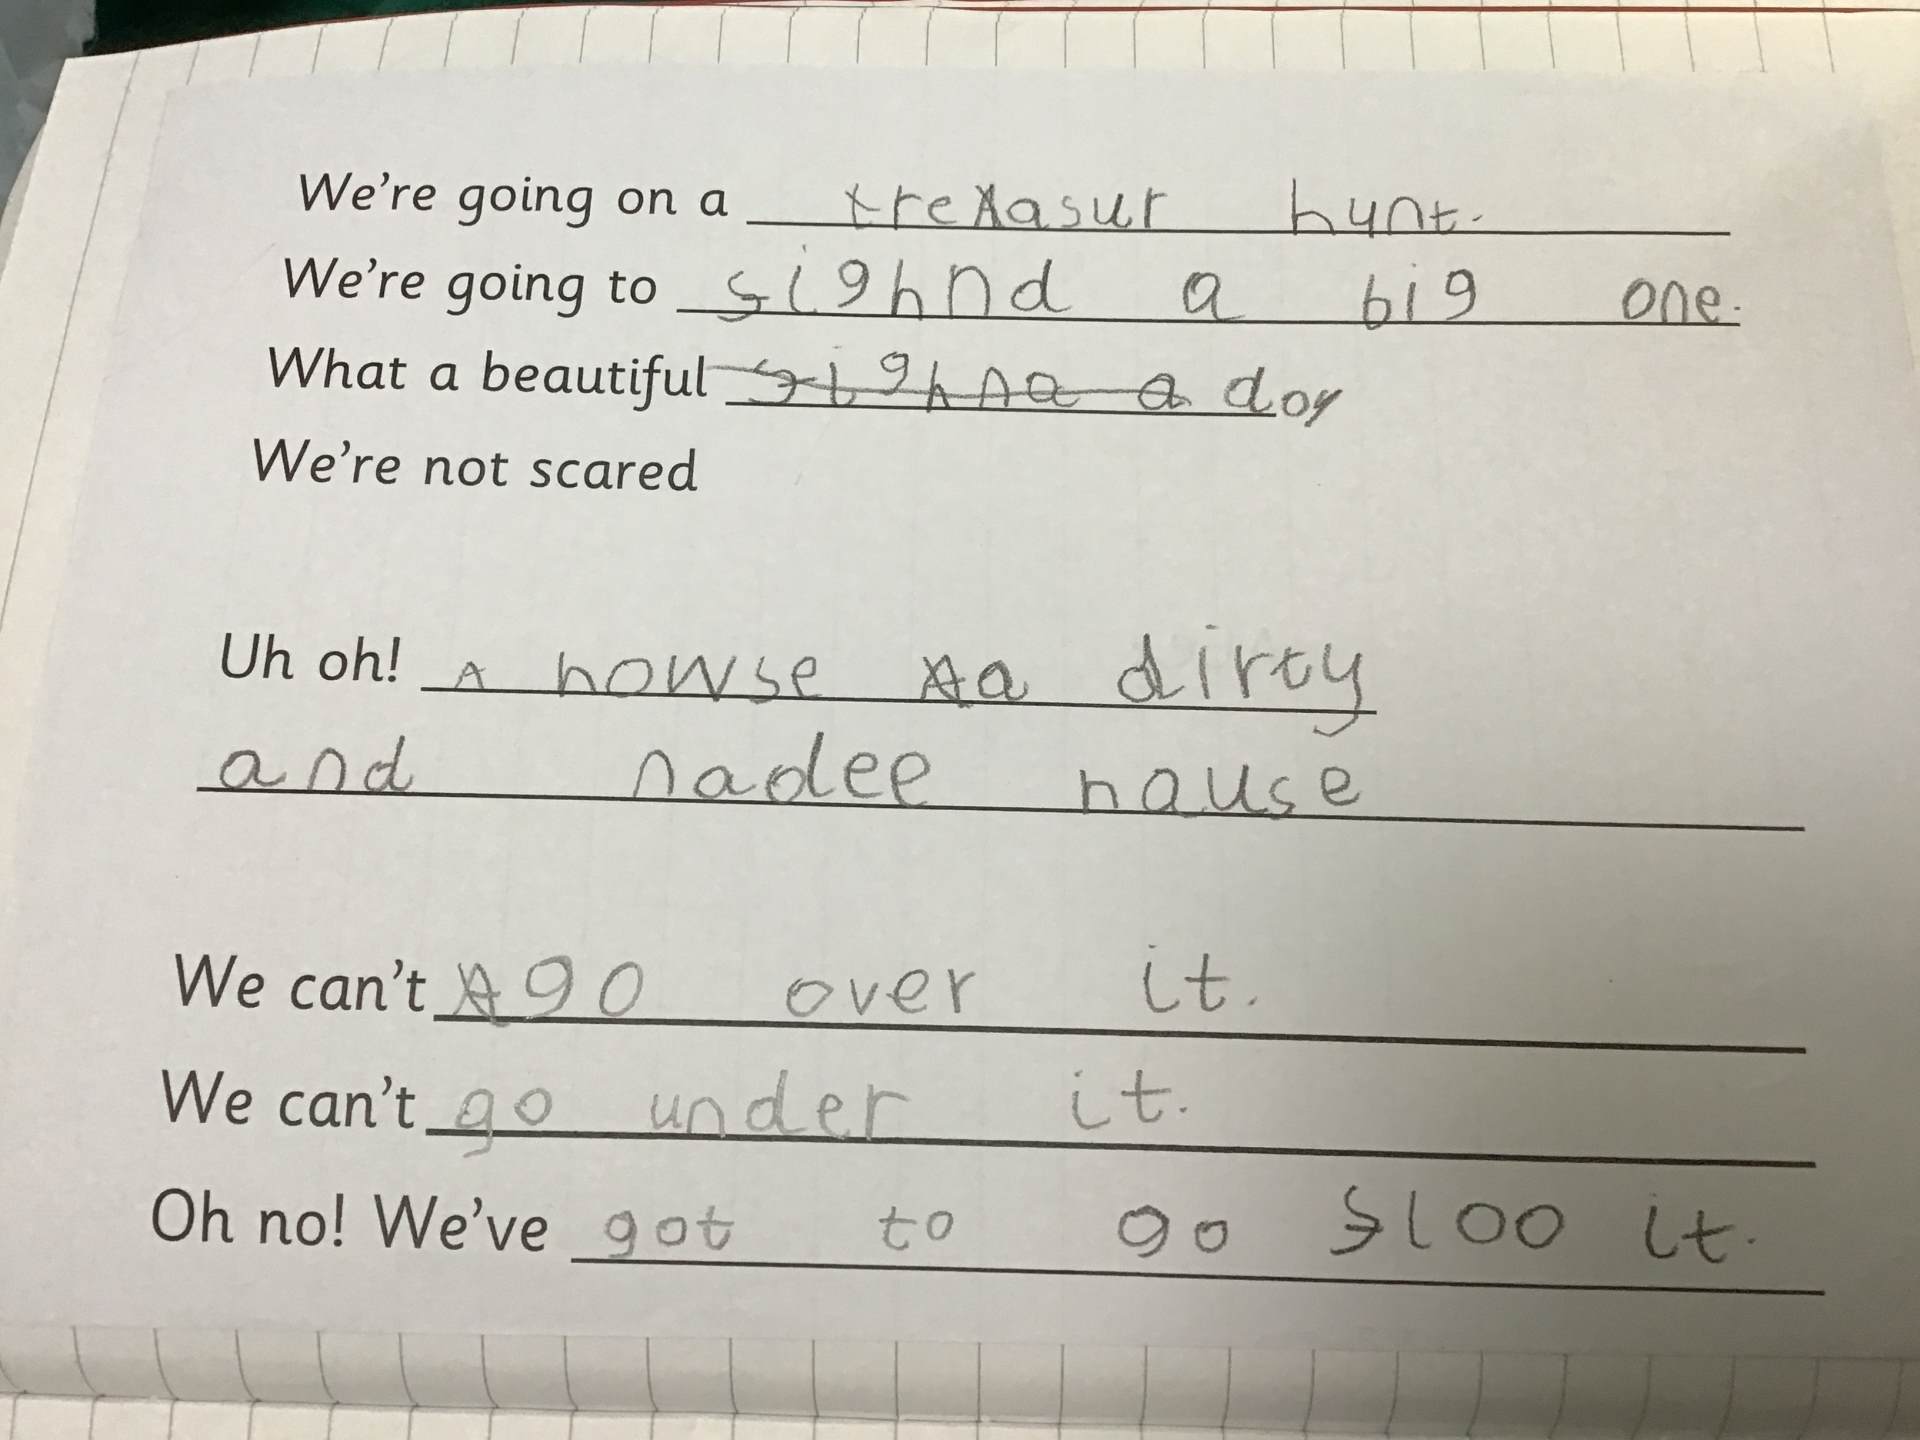 We're going on a treasur hunt.
We're going to sighnd a big one.
What a beautiful sighna a day
We're not scared
Uh oh! A howse a dirty
and nadee hause
We can't go over it.
We can't go under it.
Oh no! We've got to go sloo it.